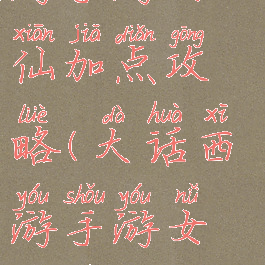 xiān jiā diǎn gōng
仙加点攻
lüè dà huà xī
略(大话西
yóu shǒu yóu nǚ
游手游女